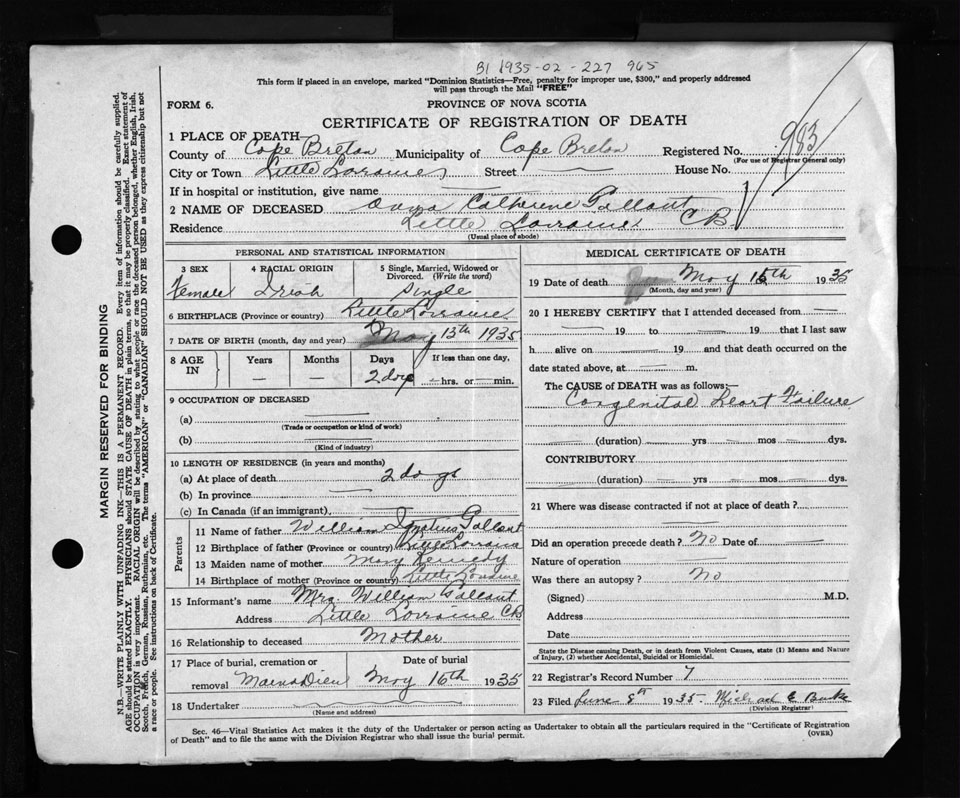 B1 1935-02-227 965
This form if placed in an envelope, marked "Dominion Statistics—Free, penalty for improper use, $300," and properly addressed
will pass through the Mail "FREE"
FORM 6.
PROVINCE OF NOVA SCOTIA
CERTIFICATE OF REGISTRATION OF DEATH
1 PLACE OF DEATH
County of Cape Breton Municipality of Cape Breton Registered No. 983
(For use of Registrar General only)
City or Town Little Lorraine Street House No.
If in hospital or institution, give name
2 NAME OF DECEASED Catherine Gallant
Residence Little Lorraine CB
(Usual place of abode)
PERSONAL AND STATISTICAL INFORMATION
3 SEX 4 RACIAL ORIGIN 5 Single, Married, Widowed or
Divorced. (Write the word)
Female Irish Single
6 BIRTHPLACE (Province or country) Little Lorraine
7 DATE OF BIRTH (month, day and year) May 13th 1935
8 AGE IN Years Months Days If less than one day,
— — 2 days hrs. or min.
9 OCCUPATION OF DECEASED
(a)
(Trade or occupation or kind of work)
(b)
(Kind of industry)
10 LENGTH OF RESIDENCE (in years and months)
(a) At place of death 2 days
(b) In province
(c) In Canada (if an immigrant)
Parents
11 Name of father William Ignatius Gallant
12 Birthplace of father (Province or country) Little Lorraine
13 Maiden name of mother Mary Kennedy
14 Birthplace of mother (Province or country) Little Lorraine
15 Informant's name Mrs. William Gallant
Address Little Lorraine CB
16 Relationship to deceased Mother
17 Place of burial, cremation or Date of burial
removal Mainadieu May 16th 1935
18 Undertaker
(Name and address)
MEDICAL CERTIFICATE OF DEATH
19 Date of death May 15th 1935
(Month, day and year)
20 I HEREBY CERTIFY that I attended deceased from
19 to 19 that I last saw
h alive on 19 and that death occurred on the
date stated above, at m.
The CAUSE of DEATH was as follows:
Congenital Heart Failure
(duration) yrs mos dys.
CONTRIBUTORY
(duration) yrs mos dys.
21 Where was disease contracted if not at place of death?
Did an operation precede death? No Date of
Nature of operation
Was there an autopsy? No
(Signed) M.D.
Address
Date
State the Disease causing Death, or in death from Violent Causes, state (1) Means and Nature
of Injury, (2) whether Accidental, Suicidal or Homicidal.
22 Registrar's Record Number 7
23 Filed June 8th 1935 Michael E Burke
(Division Registrar)
Sec. 46—Vital Statistics Act makes it the duty of the Undertaker or person acting as Undertaker to obtain all the particulars required in the "Certificate of Registration
of Death" and to file the same with the Division Registrar who shall issue the burial permit.
(OVER)
MARGIN RESERVED FOR BINDING
N.B.—WRITE PLAINLY WITH UNFADING INK—THIS IS A PERMANENT RECORD. Every item of information should be carefully supplied.
AGE should be stated EXACTLY. PHYSICIANS should STATE CAUSE OF DEATH in plain terms, so that it may be properly classified. Exact statement of
OCCUPATION is very important. RACIAL ORIGIN will be described by stating to what people or race the deceased person belonged, whether English, Irish,
Scotch, French, German, Russian, Ruthenian, etc. The terms "AMERICAN" or "CANADIAN" SHOULD NOT BE USED as they express citizenship but not
a race or people. See instructions on back of Certificate.